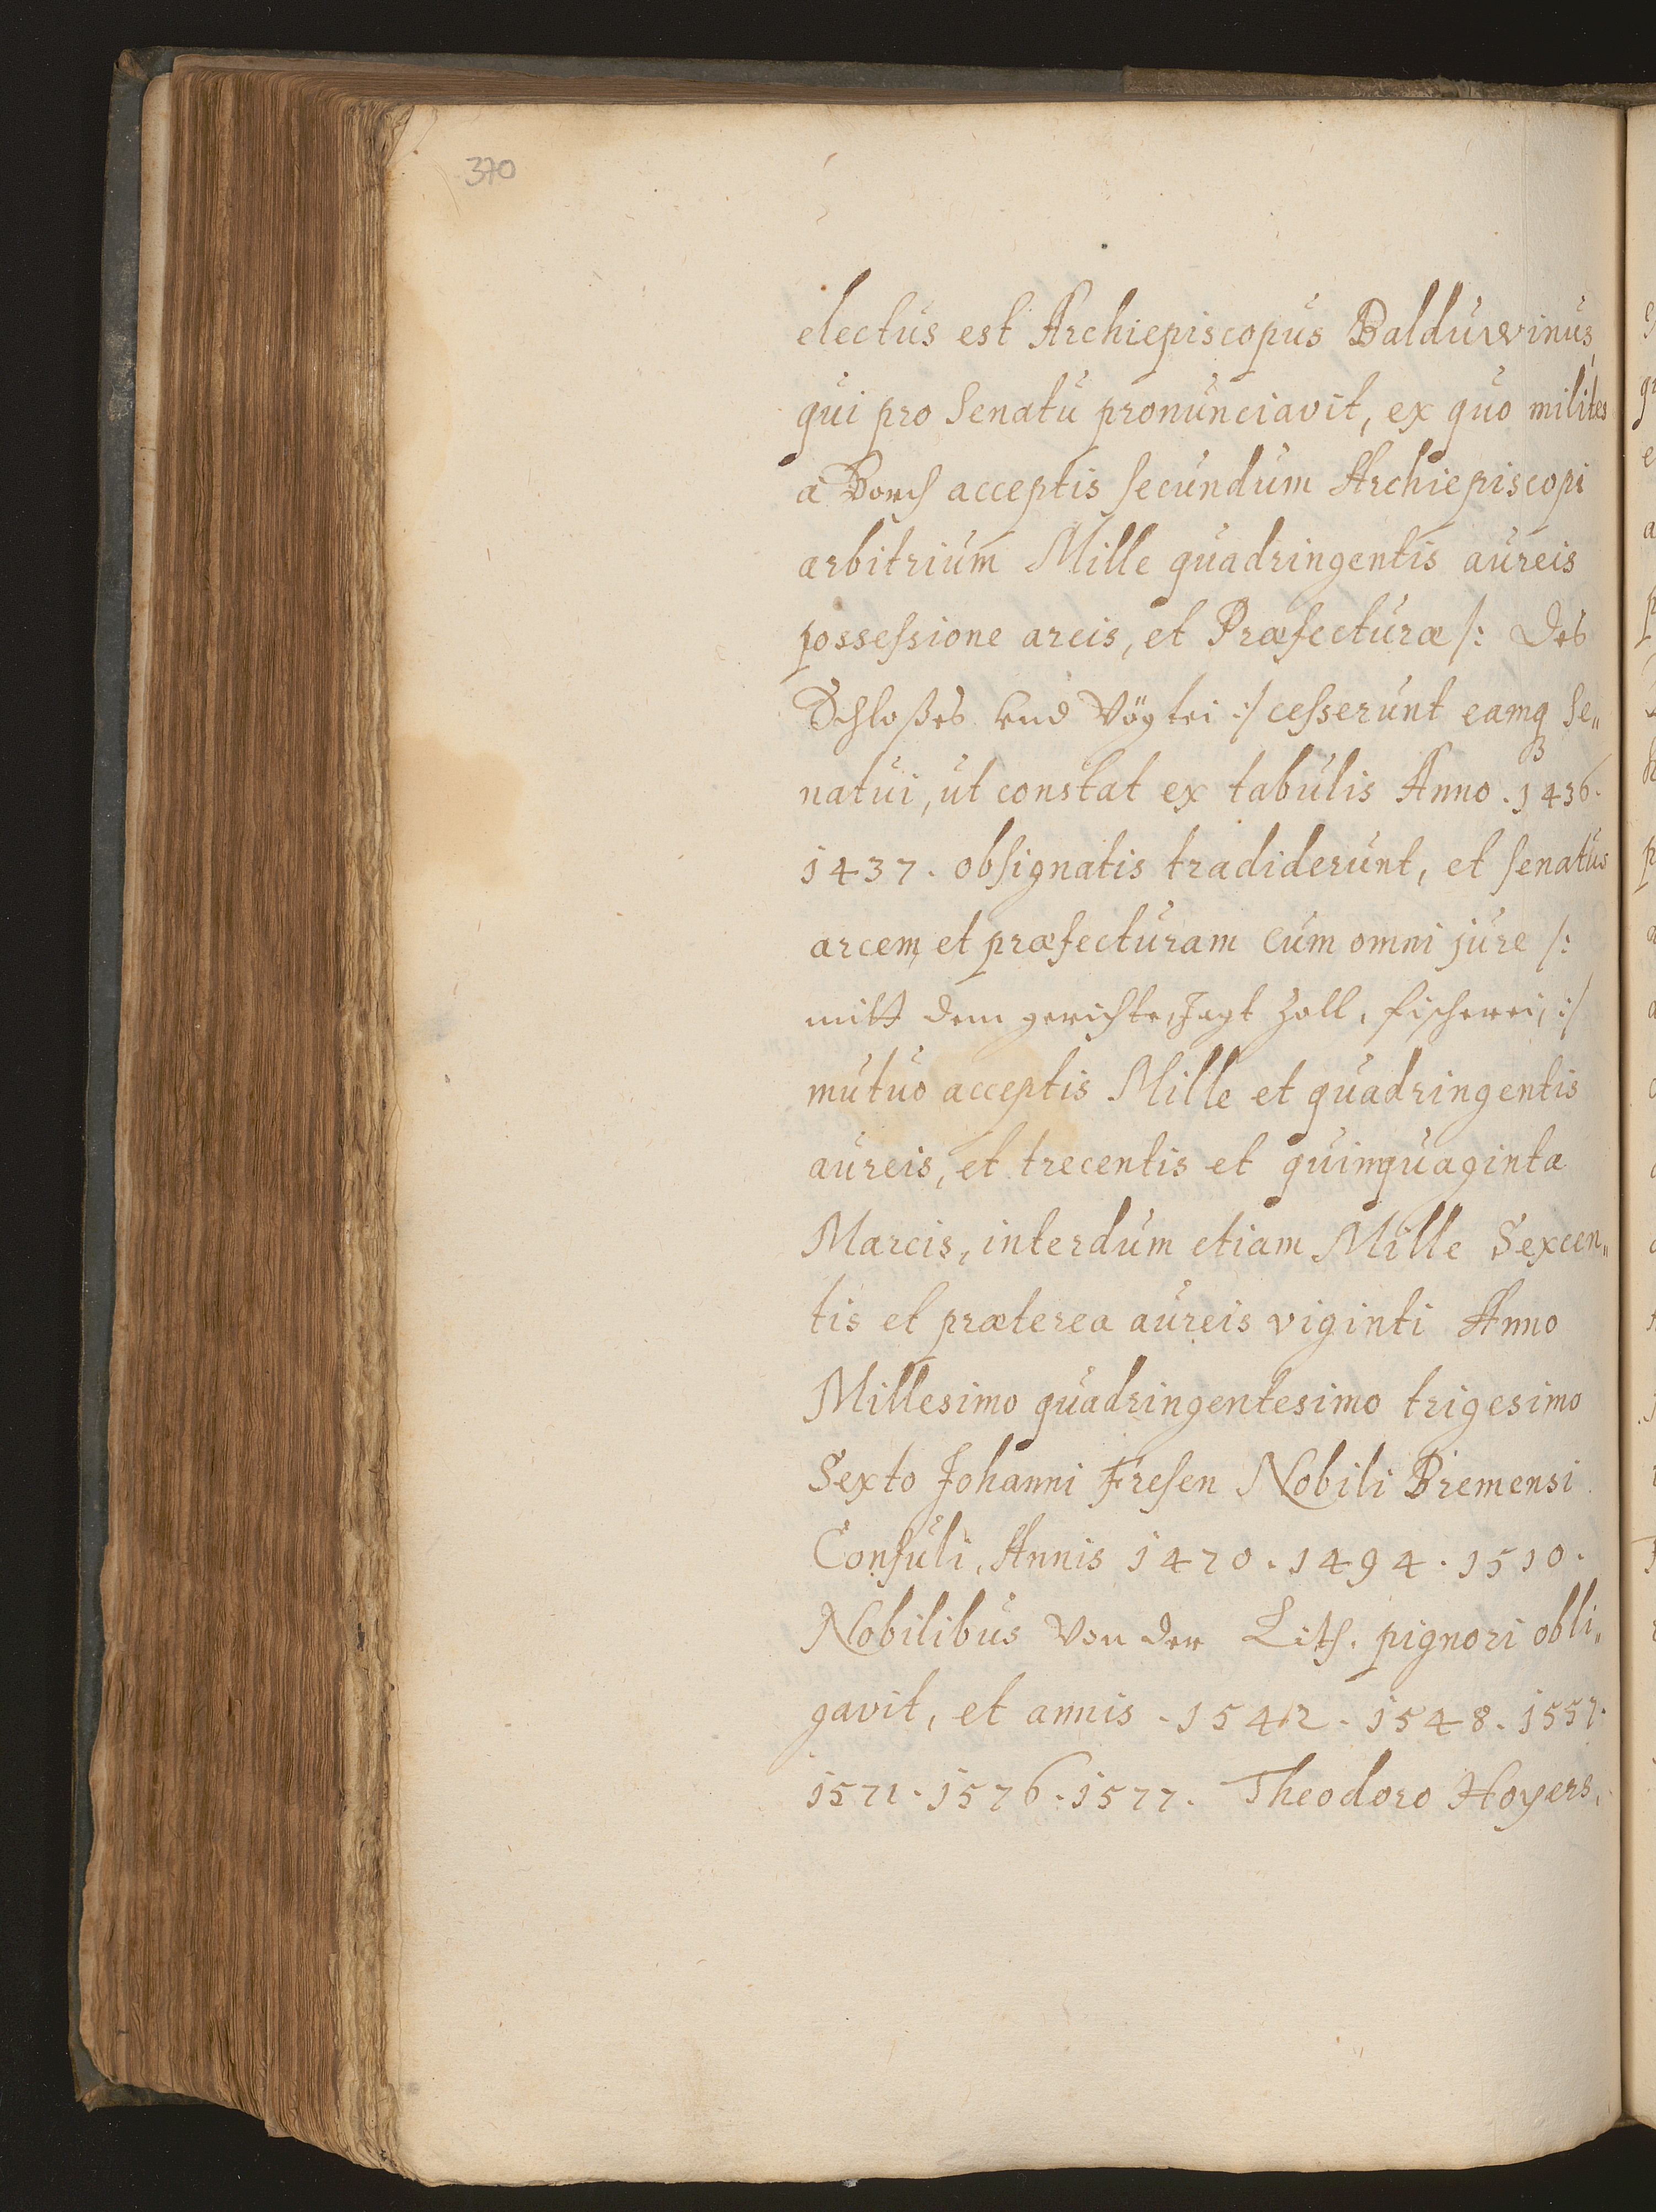 370
electus est Archiepiscopus Balduwinus,
qui pro Senatu pronunciavit, ex quo milites
à Borch acceptis secundum Archiepiscopi
arbitrium Mille quadringentis aureis
possessione arcis, et Præfecturæ /: des
Schloßes und Vögtei :/ cesserunt eamq Se„
natui, ut constat ex tabulis Anno. 1436.
1437. obsignatis tradiderunt, et senatus
arcem et præfecturam cum omni jure /:
mitt dem gerichte, Jagt Zoll, fischerei, :/
mutuo acceptis Mille et quadringentis
aureis, et trecentis et quinquaginta
Marcis, interdum etiam Mille Sexcen„
tis et præterea aureis viginti Anno
Millesimo quadringentesimo trigesimo
Sexto Johanni Fresen Nobili Bremensi
Consuli, Annis 1470. 1494. 1510.
Nobilibus Von der Lith. pignori obli„
gavit, et annis. 1542. 1548. 1557.
1571. 1576. 1577. Theodoro Hoyers,